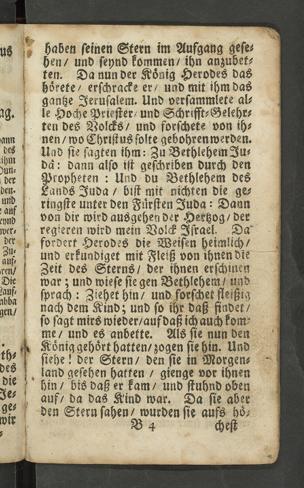 haben seinen Stern im Aufgang gese-
hen/ und seynd kommen/ ihn anzubet-
ten. Da nun der König Herodes das
hörete/ erschracke er/ und mit ihm das
gantze Jerusalem. Und versammlete al-
le Hoche Priester und Schrifft-Gelehr-
ten des Volcks/ und forschete von ih-
nen/ wo Christus solte gebohren werden.
Und sie sagten ihm: Zu Bethlehem Ju-
dä: dann also ist geschriben durch den
Propheten: Und du Bethlehem des
Lands Juda/ bist mit nichten die ge-
ringste unter den Fürsten Juda: Dann
von dir wird ausgehen der Hertzog/ der
regieren wird mein Volck Israel. Da
fordert Herodes die Weisen heimlich/
und erkundiget mit Fleiß von ihnen die
Zeit des Sterns/ der ihnen erschinen
war; und wiese sie gen Bethlehem/ und
sprach: Ziehet hin/ und forschet fleißig
nach dem Kind; und so ihr daß findet/
so sagt mirs wieder/ auf daß ich auch kom-
me/ und es anbette. Als sie nun den
König gehört hatten/ zogen sie hin. Und
siehe! der Stern/ den sie in Morgen-
land gesehen hatten/ gienge vor ihnen
hin/ bis daß er kam/ und stuhnd oben
auf/ da das Kind war. Da sie aber
den Stern sahen/ wurden sie aufs hö-
B 4 chest